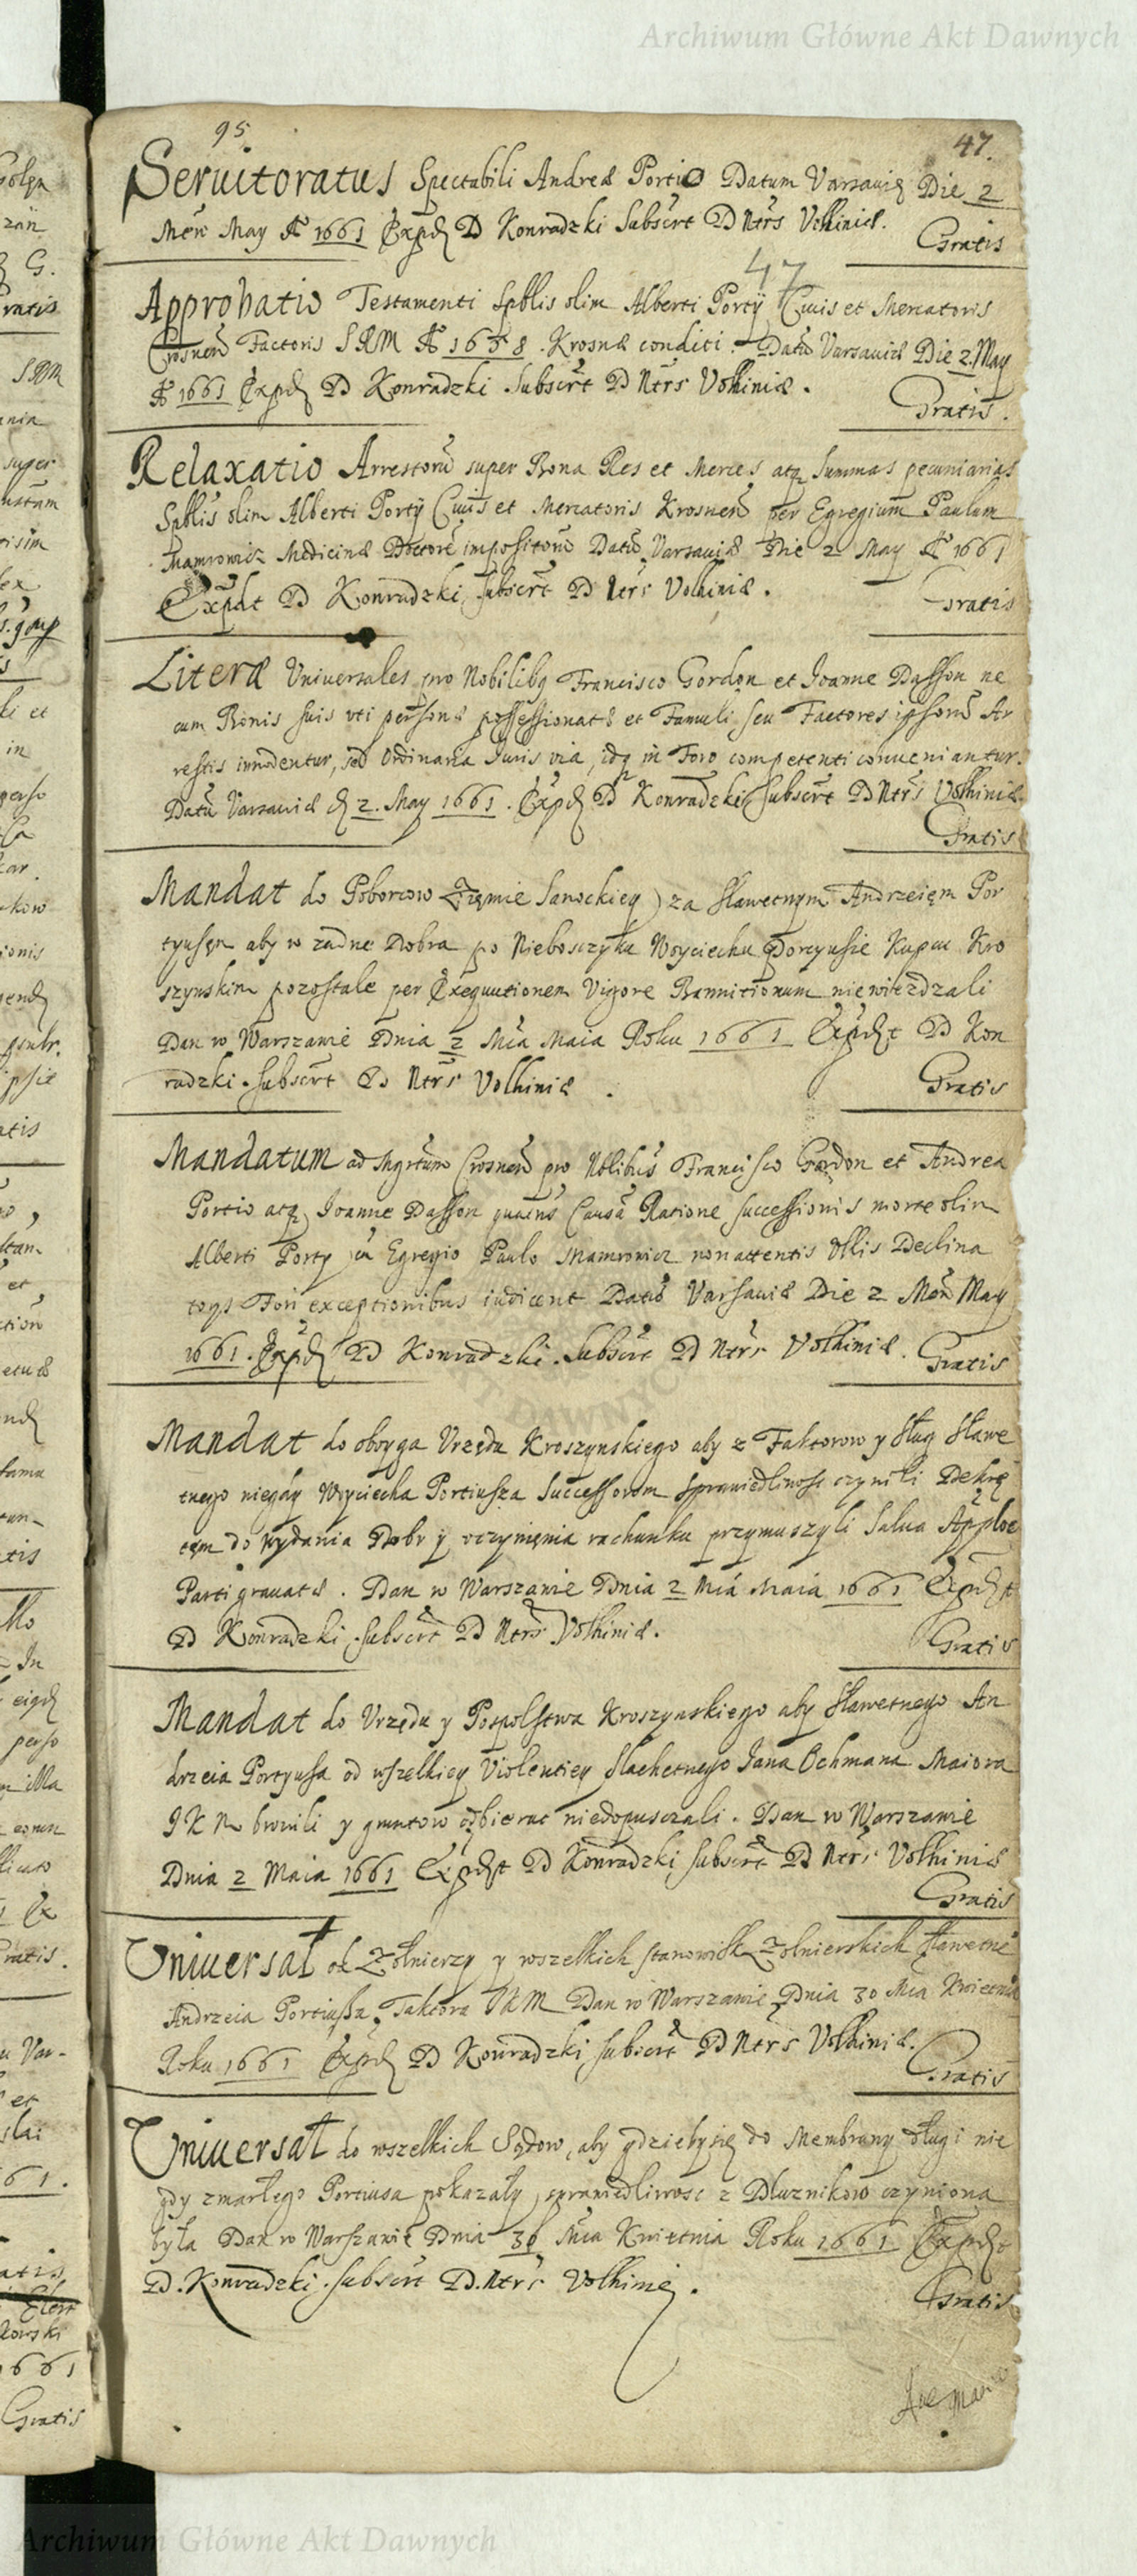 Archiwum Główne Akt Dawnych
95
47.
Servitoratus Spectabili Andreæ Portio Datum Varsaviæ Die 2
Men May A 1661 Expd D Konradzki Subscrt D Ntrs Volhiniæ.
Gratis
47
Approbatio Testamenti Spblis olim Alberti Porty Civis et Mercatoris
Crosnen Factoris SRM A 1658. Krosnæ conditi. Datū Varsaviæ Die 2. May
A 1661 Expd D Konradzki Subscrt D Ntrs Volhiniæ.
Gratis.
Relaxatio Arrestorū super Bona Res et Merces atq Summas pecuniarias
Spblis olim Alberti Porty Civis et Mercatoris Krosnen per Egregium Paulum
Mamrowicz Medicinæ Doctorē impositorū Datū Varsaviæ Die 2 May A 1661
Expdt D Konradzki, subscrt D Ntrs Volhiniæ.
Gratis
Literæ Universales pro Nobilibq Francisco Gordon et Joanne Dasson ne
cum Bonis suis uti personæ possessionatæ et Famuli seu Factores ipsorū Ar
restis innodentur, sed Ordinaria Iuris via, idq in Foro competenti conveniantur.
Datū Varsaviæ d 2. May 1661. Expd D Konradzki subscrt D Ntrs Volhiniæ.
Gratis
Mandat do Poborcow Ziemie Sanockiey za sławetnym Andrzeiem Por
tyusem aby w żadne Dobra po Nieboszczyku Woyciechu Porcyusie Kupcu Kro
szynskim pozostałe per Exequutionem Vigore Bannitionum niewieżdzali
Dan w Warszawie Dnia 2 Mca Maia Roku 1661 Expdt D Kon
radzki. subscrt D Ntrs Volhiniæ.
Gratis
Mandatum ad Mgrtum Crosnen pro Nblibus Francisco Gordon et Andrea
Portio atq Joanne Dasson quatns Causā Ratione successionis morte olim
Alberti Porty cū Egregio Paulo Mamrowicz non attentis ullis Declina
torys Fori exceptionibus iudicent Datū Varsaviæ Die 2 Men May
1661. Expd D Konradzki. Subscrt D Ntrs Volhiniæ.
Gratis
Mandat do oboyga Urzędu Kroszynskiego aby z Faktorow y sług sławe
tnego niegdy Woyciecha Portiusza Successorom sprawiedliwosc czynili Dekre
tem do wydania Dobr y uczynienia rachunku przymuszyli Salva Appłoe
Parti gravatæ. Dan w Warszawie Dnia 2 Mca Maia 1661 Expdt
D Konradzki. subscrt D Ntrs Volhiniæ.
Gratis
Mandat do Urzędu y Pospolstwa Kroszynskiego aby sławetnego An
drzeia Portyusa od wszelkiey Violentiey slachetnego Jana Ochmana Maiora
JKM bronili y gruntow odbierac niedopusczali. Dan w Warszawie
Dnia 2 Maia 1661 Expdt D Konradzki subscrt D Ntrs Volhiniæ
Gratis
Uniwersał od Żołnierzy y wszelkich stanowisk żołnierskich sławetne
Andrzeia Portiusza, Faktora JKM Dan w Warszawie Dnia 30 Mca Kwietnia
Roku 1661 Expd D Konradzki subscrt D Ntrs Volhiniæ.
Gratis
Uniwersał do wszelkich Sądow, aby gdzieby się do Membrany długi nie
gdy zmarłego Portiusa pokazały, sprawiedliwosc z Dłuznikow czyniona
była Dan w Warszawie Dnia 30 Mca Kwietnia Roku 1661 Expdt
D. Konradzki. subscrt D. Ntrs Volhiniæ.
Gratis
Ave Maria
Archiwum Główne Akt Dawnych